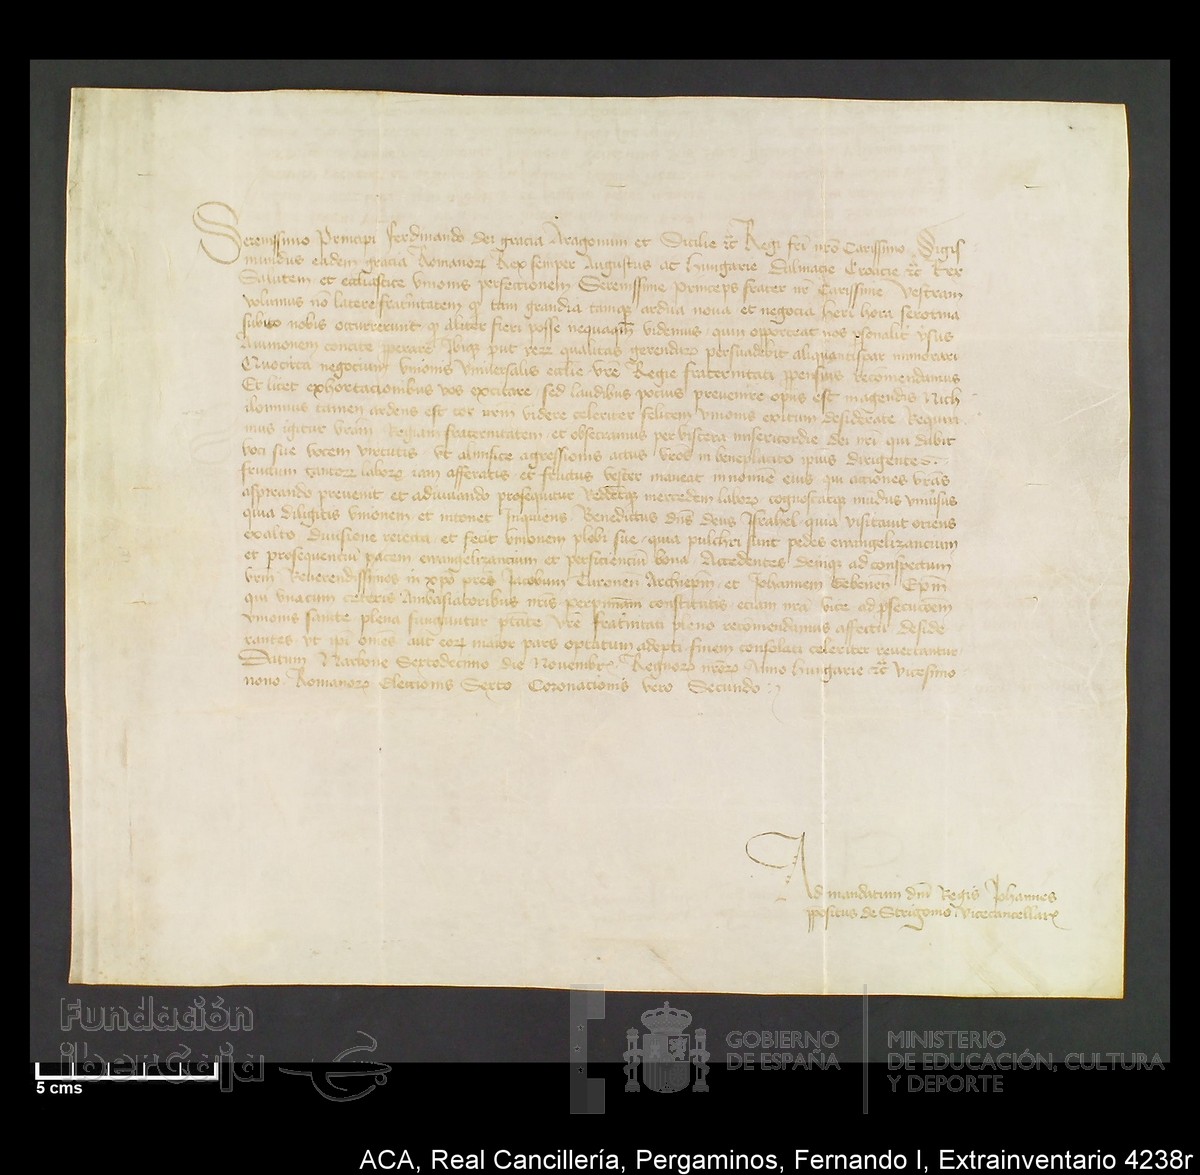 Serenissimo Principi Ferdinando dei gracia Aragonum et Sicilie etc Regi fri nro Carissimo Sigis
mundus eadem gracia Romanorum Rex semper Augustus ac Hungarie Dalmacie Croacie etc Rex
Salutem et ecclesiastice Unionis perfectionem Serenissime Princeps frater nr Carissime Vestram
volumus no latere fraternitatem q tam grandia tamque ardua nova et negocia heri hora serotina
subito nobis occurrerunt q aliter fieri posse nequaqm videmus quin opporteat nos psonalit vsus
Avinionem concite pperare Ibiq put rerum qualitas gerendarum persuadebit aliquantisper immorari
Quocirca negocium Unionis Universalis ecclie vre Regie fraternitati ppensius recomendamus
Et licet exhortacionibus vos excitare sed laudibus pocius prevenire opus est magendis Nich
ilominus tamen ardens est cor nrm videre celeriter felicem Unionis exitum desiderate Requiri
mus igitur vram Regiam fraternitatem et obsecramus per viscera misericordie dei nri qui dabit
voci sue vocem virtutis ut actus vros in beneplacito ipius dirigentes
fructum laborum iam afferatis et fructus vester maneat in nomine eius qui actiones vras
aspirando prevenit et adiuvando prosequitur Reddetque mercedem laborum cognoscatque mundus universus
quia diligitis Unionem et intonet Inquiens Benedictus dns deus Israhel quia visitavit oriens
exalto divisione reiecta et fecit Unionem plebi sue quia pulchri sunt pedes evangelizancium
et prosequencium pacem evangelizancium et perficiencium bona Accedentes demique ad conspectum
vrm Reverendissimos in xpo pres Jacobum Turonen Archiepm et Johannem Gebenen Epm
qui unacum ceteris Ambasiatoribus nris perpiniani constitutis eciam nra vice ad psecucoem
Unionis sancte plena funguntur ptate vre fraternitati pleno recomendamus affectu deside
rantes ut ipi omnes aut eorum maior pars optatum adepti finem consolati celeriter revertantur
Datum Narbone Septodecimo die Novembr Regnorum nrorum Anno Hungarie etc vicesimo
nono Romanorum Electionis Sexto Coronacionis vero Secundo
Ad mandatum dni Regis Johannes
ppositus de Strigonio Vicecancellar
Fundación
iberCaja
5 cms
GOBIERNO
DE ESPAÑA
MINISTERIO
DE EDUCACIÓN, CULTURA
Y DEPORTE
ACA, Real Cancillería, Pergaminos, Fernando I, Extrainventario 4238r